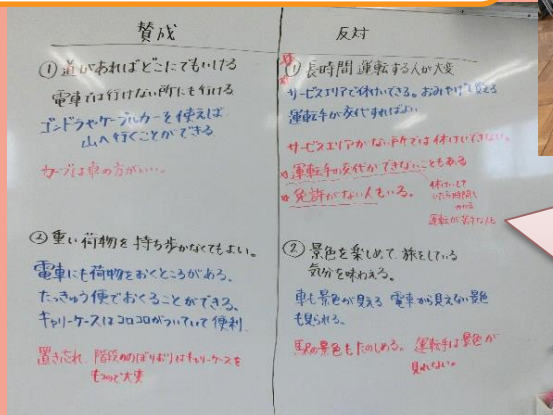 賛成
① 道があればどこにでもいける
電車では行けない所にも行ける
ゴンドラやケーブルカーを使えば
山へ行くことができる
車の方がいい。
② 重い荷物を持ち歩かなくてもよい。
電車にも荷物をおくところがある。
たっきゅう便でおくることができる。
キャリーケースはコロコロがついていて便利
置き忘れ 階段ののぼりおりはキャリーケースを
もつので大変
反対
① 長時間運転する人が大変
サービスエリアで休けいできる。おみやげも買える
運転手が交代すればよい
サービスエリアがない所では休けいできない。
運転手の交代ができないこともある
免許がない人もいる。
休けいして
いたら時間も
かかる
運転が苦手な人も
② 景色を楽しめて、旅をしている
気分を味わえる。
車も景色が見える 電車から見えない景色
も見られる。
駅の景色もたのしめる。 運転手は景色が
見れない。